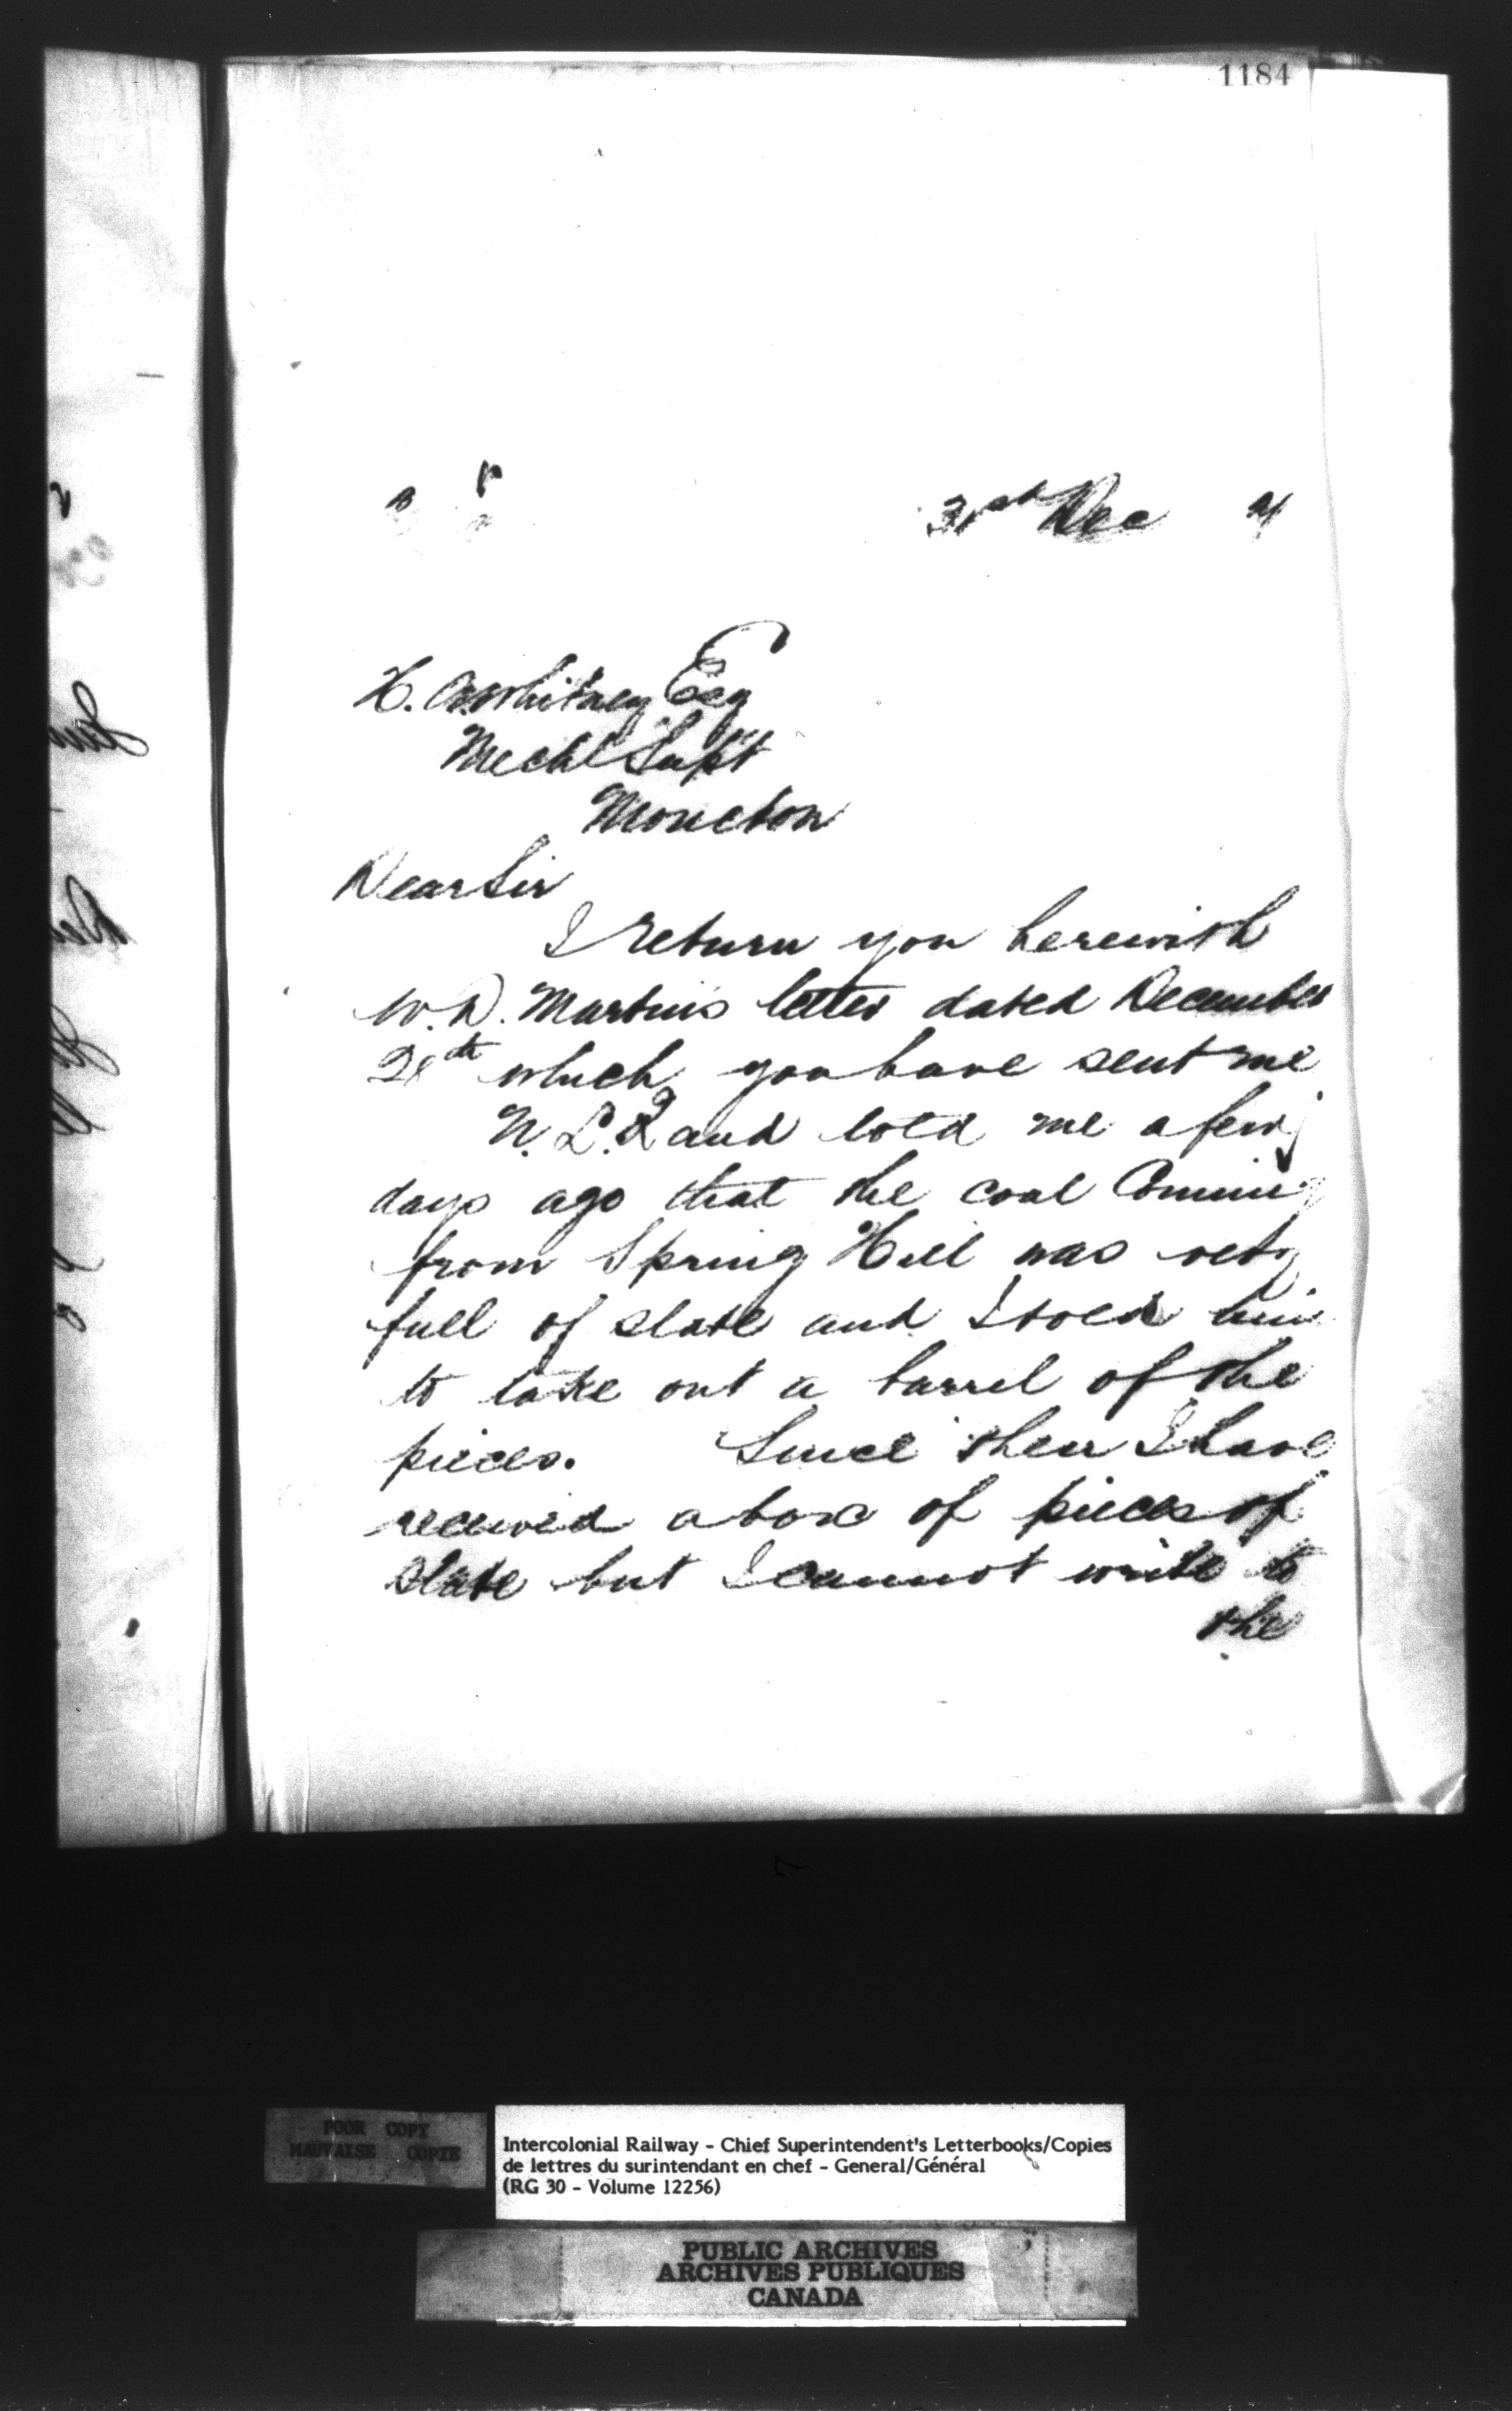 1184
31st Dec
H. A. Whitney Esq
Mechl Supt
Moncton
Dear Sir
I return you herewith
W. D. Martin's letter dated December
28th which you have sent me
and told me a few
days ago that the coal Coming
from Spring Hill was very
full of slate and I told him
to take out a barrel of the
pieces. Since then I have
received a box of pieces of
slate but I cannot write to
the
POOR COPY
MAUVAISE COPIE
Intercolonial Railway - Chief Superintendent's Letterbooks/Copies
de lettres du surintendant en chef - General/Général
(RG 30 - Volume 12256)
PUBLIC ARCHIVES
ARCHIVES PUBLIQUES
CANADA